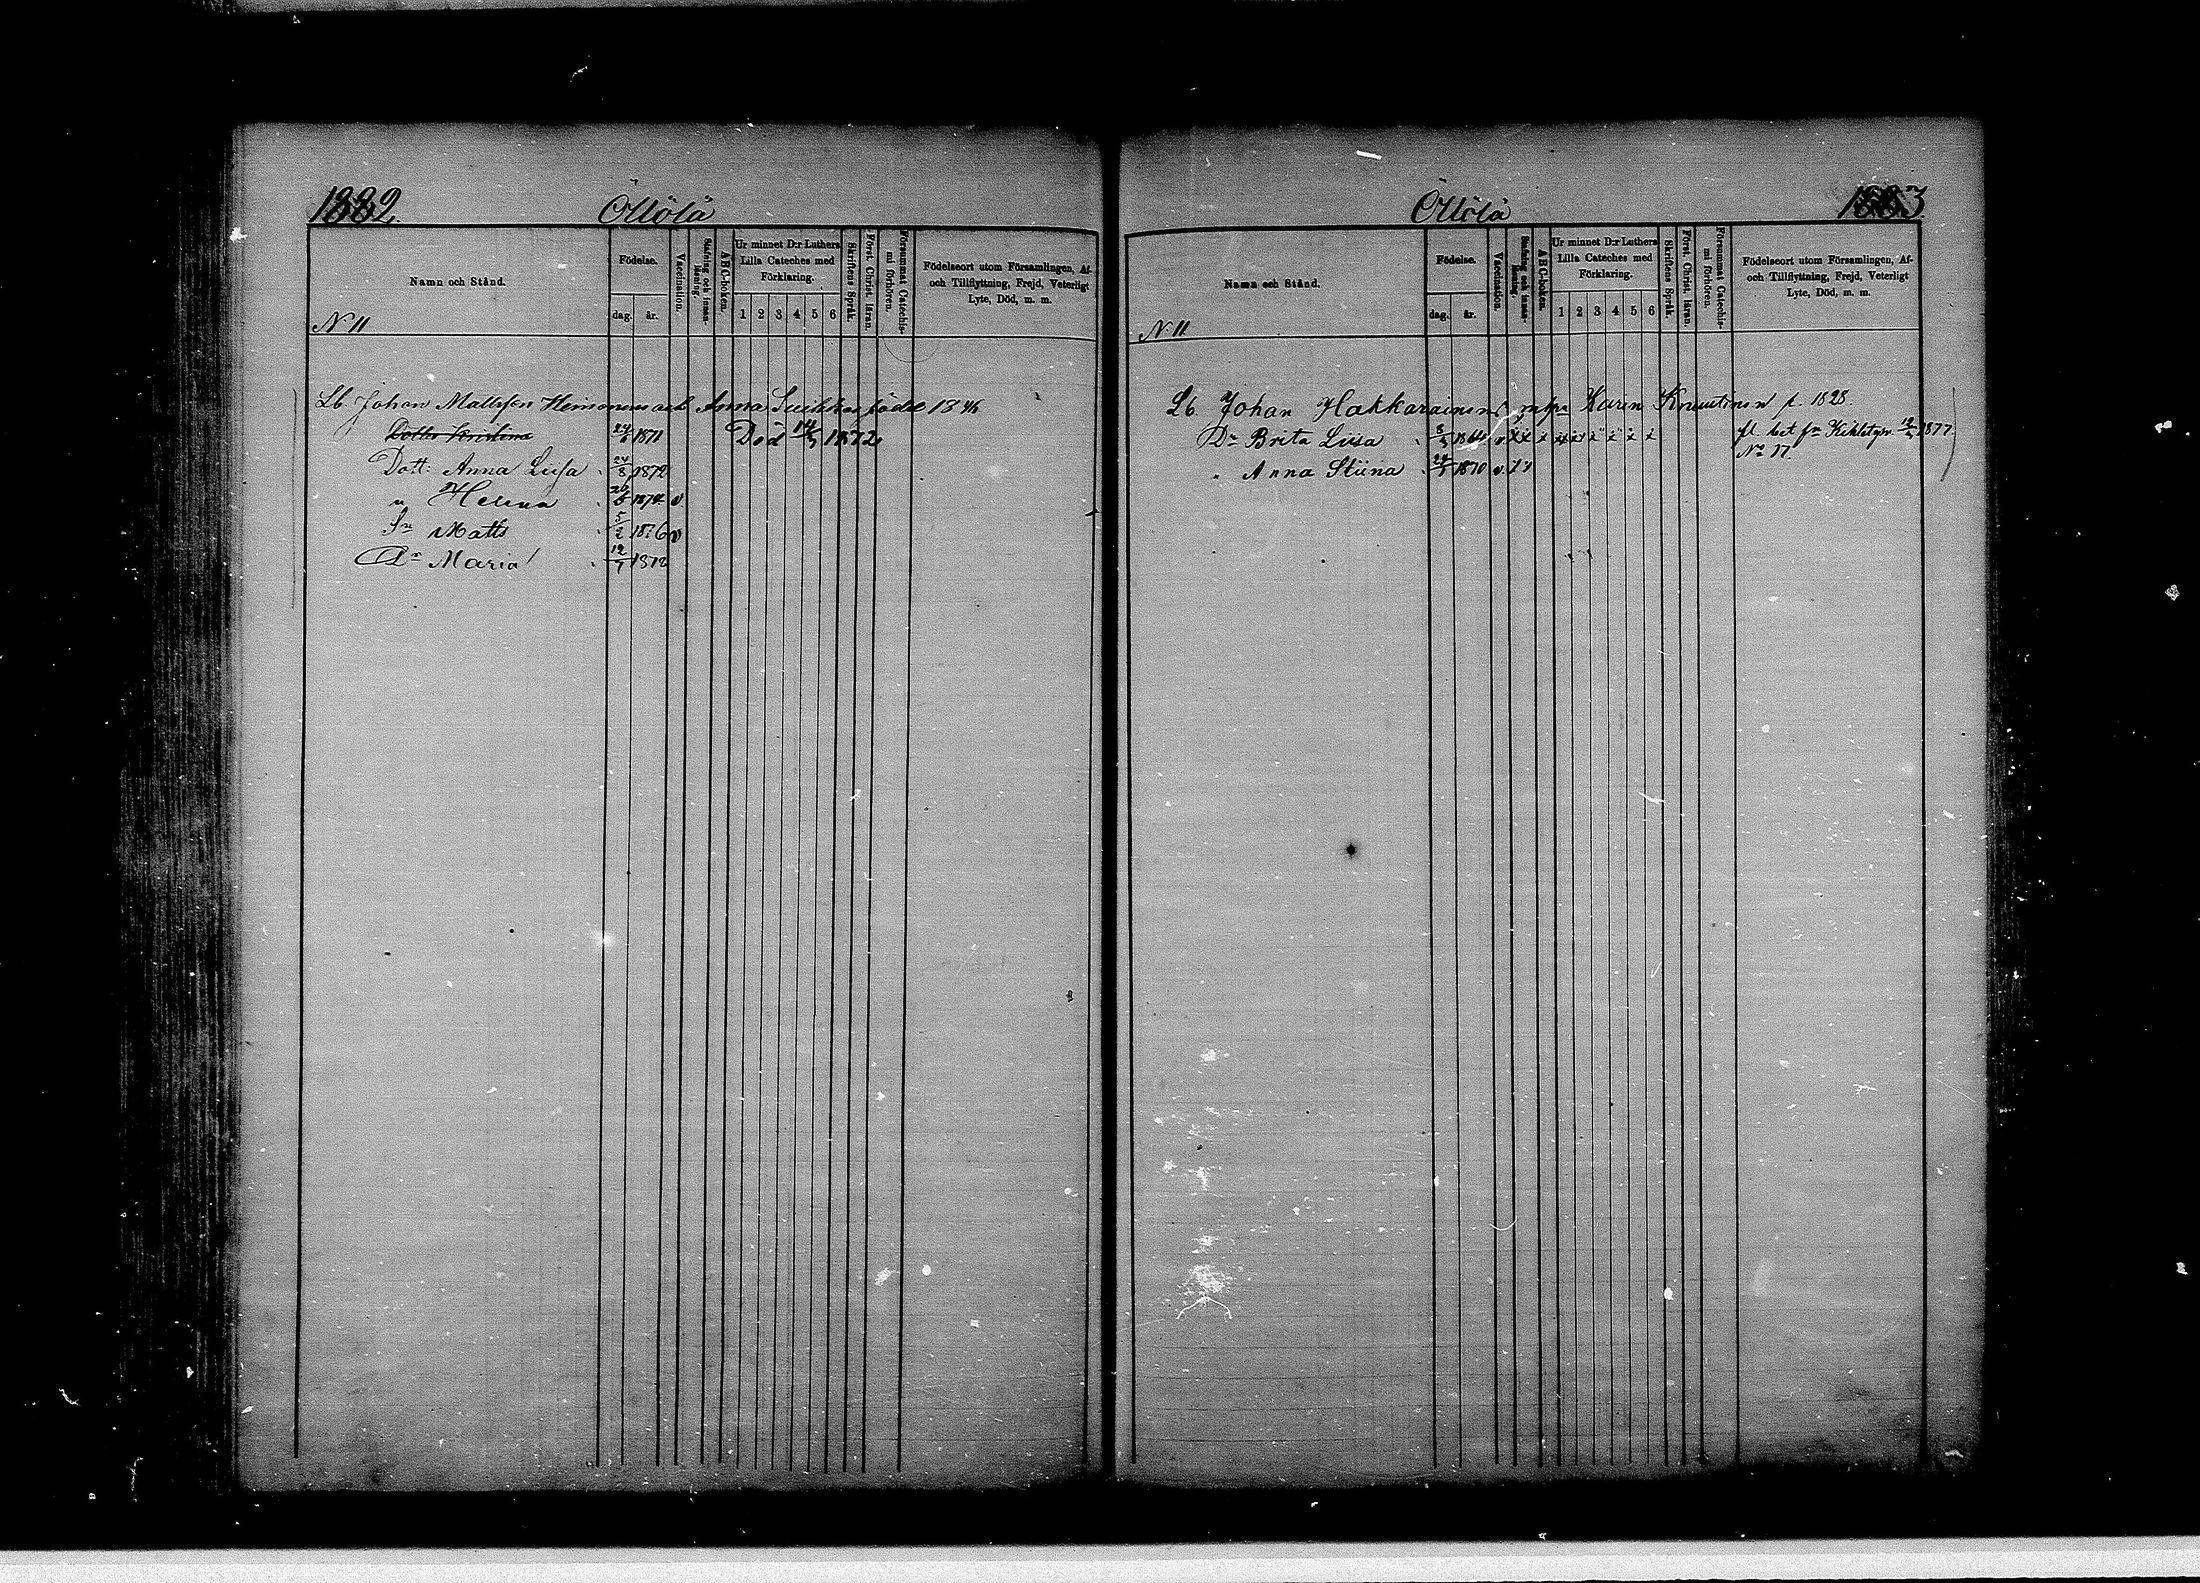 1882.
Ollölä
Namn och Stånd.
N 11
Födelse.
dag. år.
Vaccination.
Stafning och innanläsning.
ABC-boken.
Ur minnet D:r Luthers
Lilla Cateches med
Förklaring.
1 2 3 4 5 6
Skriftens Språk.
Först. Christ. läran.
Försummat Catechismi förhören.
Födelseort utom Församlingen, Af-
och Tillflyttning, Frejd, Veterligt
Lyte, Död, m. m.
Lb. Johan Mattsson Heinonen och Anna Suikkar född 1846
Dotter Kristina 24/6 1871 Död 14/5 1872
Dott: Anna Luisa 24/8 1872
" Helena 26/6 1874 v
Sn Matts 5/2 1876 v
Dr Maria 12/7 1878
Ollölä
1883
Namn och Stånd.
N 11
Födelse.
dag. år.
Vaccination.
Stafning och innanläsning.
ABC-boken.
Ur minnet D:r Luthers
Lilla Cateches med
Förklaring.
1 2 3 4 5 6
Skriftens Språk.
Först. Christ. läran.
Försummat Catechismi förhören.
Födelseort utom Församlingen, Af-
och Tillflyttning, Frejd, Veterligt
Lyte, Död, m. m.
Lb. Johan Hakkarainens Karin Knuutinen f. 1828.
Dr Brita Liisa 8/5 1864 fl. bet fr Kihletysv. 1877.
No 17.
" Anna Stiina 1870 v.